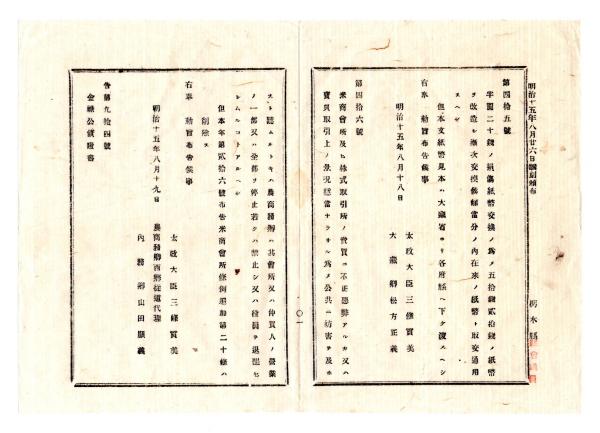 明治十五年八月廿六日翻刷頒布
栃木縣
第四拾五號
半圓二十錢ノ損傷紙幣交換ノ爲メ五拾錢貳拾錢ノ紙幣
ヲ改造シ漸次交換候條當分ノ内在來ノ紙幣ト取交通用
スヘシ
但本文紙幣見本ハ大藏省ヨリ各府縣ヘ下ケ渡スヘシ
右奉 勅旨布告候事
明治十五年八月十八日
太政大臣三條實美
大藏卿松方正義
第四拾六號
米商會所及ヒ株式取引所ノ賣買ニ不正惡弊アルカ又ハ
賣買取引上ノ景況穩當ナラサル爲メ公共ニ妨害ヲ及ホ
〇一
スト認ムルトキハ農商務卿ハ其會所又ハ仲買人ノ營業
ノ一部又ハ全部ヲ停止若クハ禁止シ又ハ役員ヲ退罷セ
シムルコトアルヘシ
但本年第貳拾六號布告米商會所條例追加第二十條ハ
削除ス
右奉 勅旨布告候事
明治十五年八月十九日
太政大臣三條實美
農商務卿西郷從道代理
内務卿山田顯義
告第九拾四號
金祿公債證書